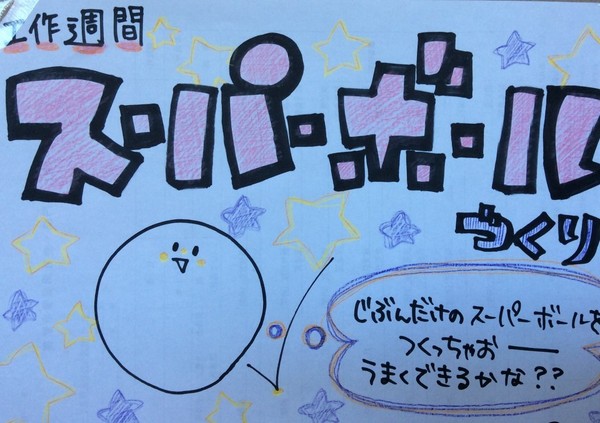 工作週間
スーパーボール
づくり
じぶんだけのスーパーボールを
つくっちゃおー
うまくできるかな??